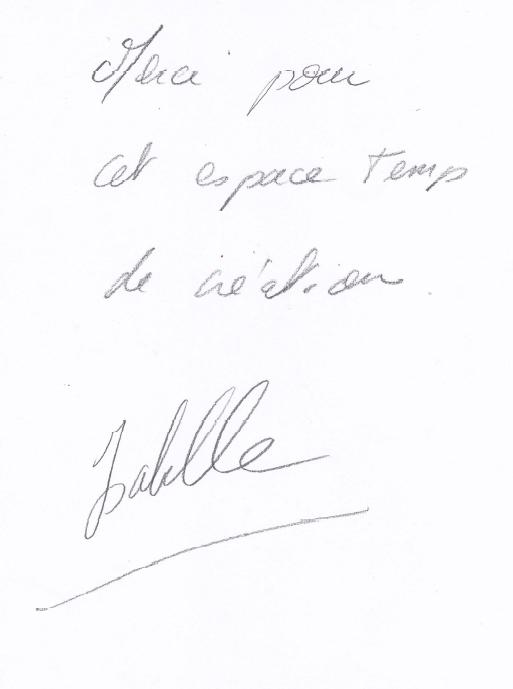 Merci pour
cet espace temps
de création.
Isabelle